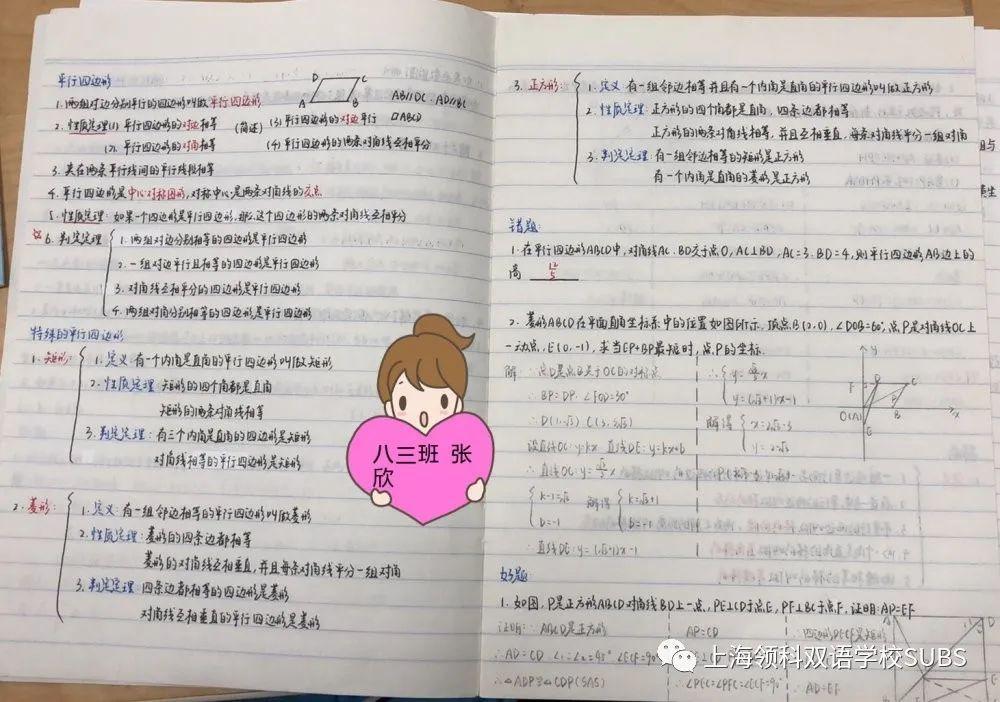 平行四边形
1. 两组对边分别平行的四边形叫做平行四边形
D C
A B
AB//DC . AD//BC
2. 性质定理(1) 平行四边形的对边相等 (简证) (3) 平行四边形的对边平行 ▱ABCD
(2). 平行四边形的对角相等 (4) 平行四边形的两条对角线互相平分
3. 夹在两条平行线间的平行线段相等
4. 平行四边形是中心对称图形,对称中心是两条对角线的交点
5. 性质定理: 如果一个四边形是平行四边形,那么这个四边形的两条对角线互相平分
☆ 6. 判定定理 1. 两组对边分别相等的四边形是平行四边形
2. 一组对边平行且相等的四边形是平行四边形
3. 对角线互相平分的四边形是平行四边形
4. 两组对角分别相等的四边形是平行四边形
特殊的平行四边形
1. 矩形: 1. 定义: 有一个内角是直角的平行四边形叫做矩形
2. 性质定理: 矩形的四个角都是直角
矩形的两条对角线相等
3. 判定定理: 有三个内角是直角的四边形是矩形
对角线相等的平行四边形是矩形
2. 菱形: 1. 定义: 有一组邻边相等的平行四边形叫做菱形
2. 性质定理: 菱形的四条边都相等
菱形的对角线互相垂直,并且每条对角线平分一组对角
3. 判定定理: 四条边都相等的四边形是菱形
对角线互相垂直的平行四边形是菱形
八三班 张
欣
3. 正方形 1. 定义: 有一组邻边相等并且有一个内角是直角的平行四边形叫做正方形
2. 性质定理: 正方形的四个角都是直角, 四条边都相等
正方形的两条对角线相等, 并且互相垂直, 每条对角线平分一组对角
3. 判定定理: 有一组邻边相等的矩形是正方形
有一个内角是直角的菱形是正方形
错题:
1. 在平行四边形ABCD中,对角线AC. BD交于点O, AC⊥BD, AC=3. BD=4,则平行四边形AB边上的
高 12/5
2. 菱形ABCD在平面直角坐标系中的位置如图所示, 顶点B(2,0), ∠DOB=60°, 点P是对角线OC上
一动点, E(0,-1), 求当EP+BP最短时, 点P的坐标.
解: ∵点D是点B关于OC的对称点
∴BP=DP. ∠FOD=30°
∴D(1,√3) C(3,√3)
设直线OC: y=kx 直线DE: y=kx+b
∴直线OC: y=√3/3 x
k-1=√3 解得 k=√3+1
b=-1 b=-1
∴直线DE: y=(√3+1)x-1
∴ y=√3/3 x
y=(√3+1)x-1
解得 x=2√3-3
y=2-√3
y
F D C
O(A) B x
E
好题
1. 如图, P是正方形ABCD对角线BD上一点, PE⊥CD于点E, PF⊥BC于点F, 证明: AP=EF
证明: ∵ABCD是正方形
∴AD=CD ∠1=∠2=45° ∠ECF=90°
∴△ADP≌△CDP(SAS)
∴∠PEC=∠PFC=∠ECF=90°
∴四边形PECF是矩形
上海领科双语学校SUBS